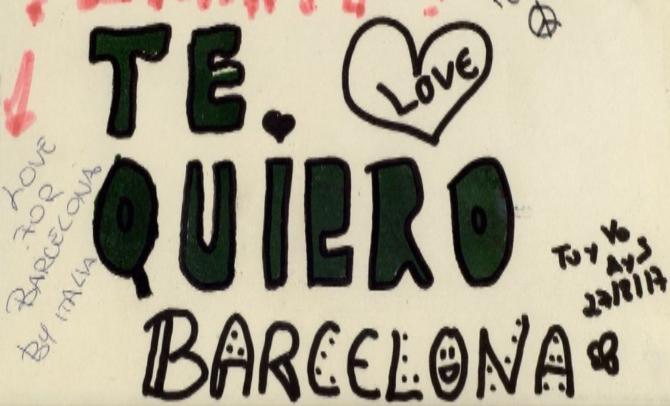 TE
LOVE
QUIERO
BARCELONA
LOVE
FOR
BARCELONA
BY ITALIA
TU Y YO
A Y S
27/8/17